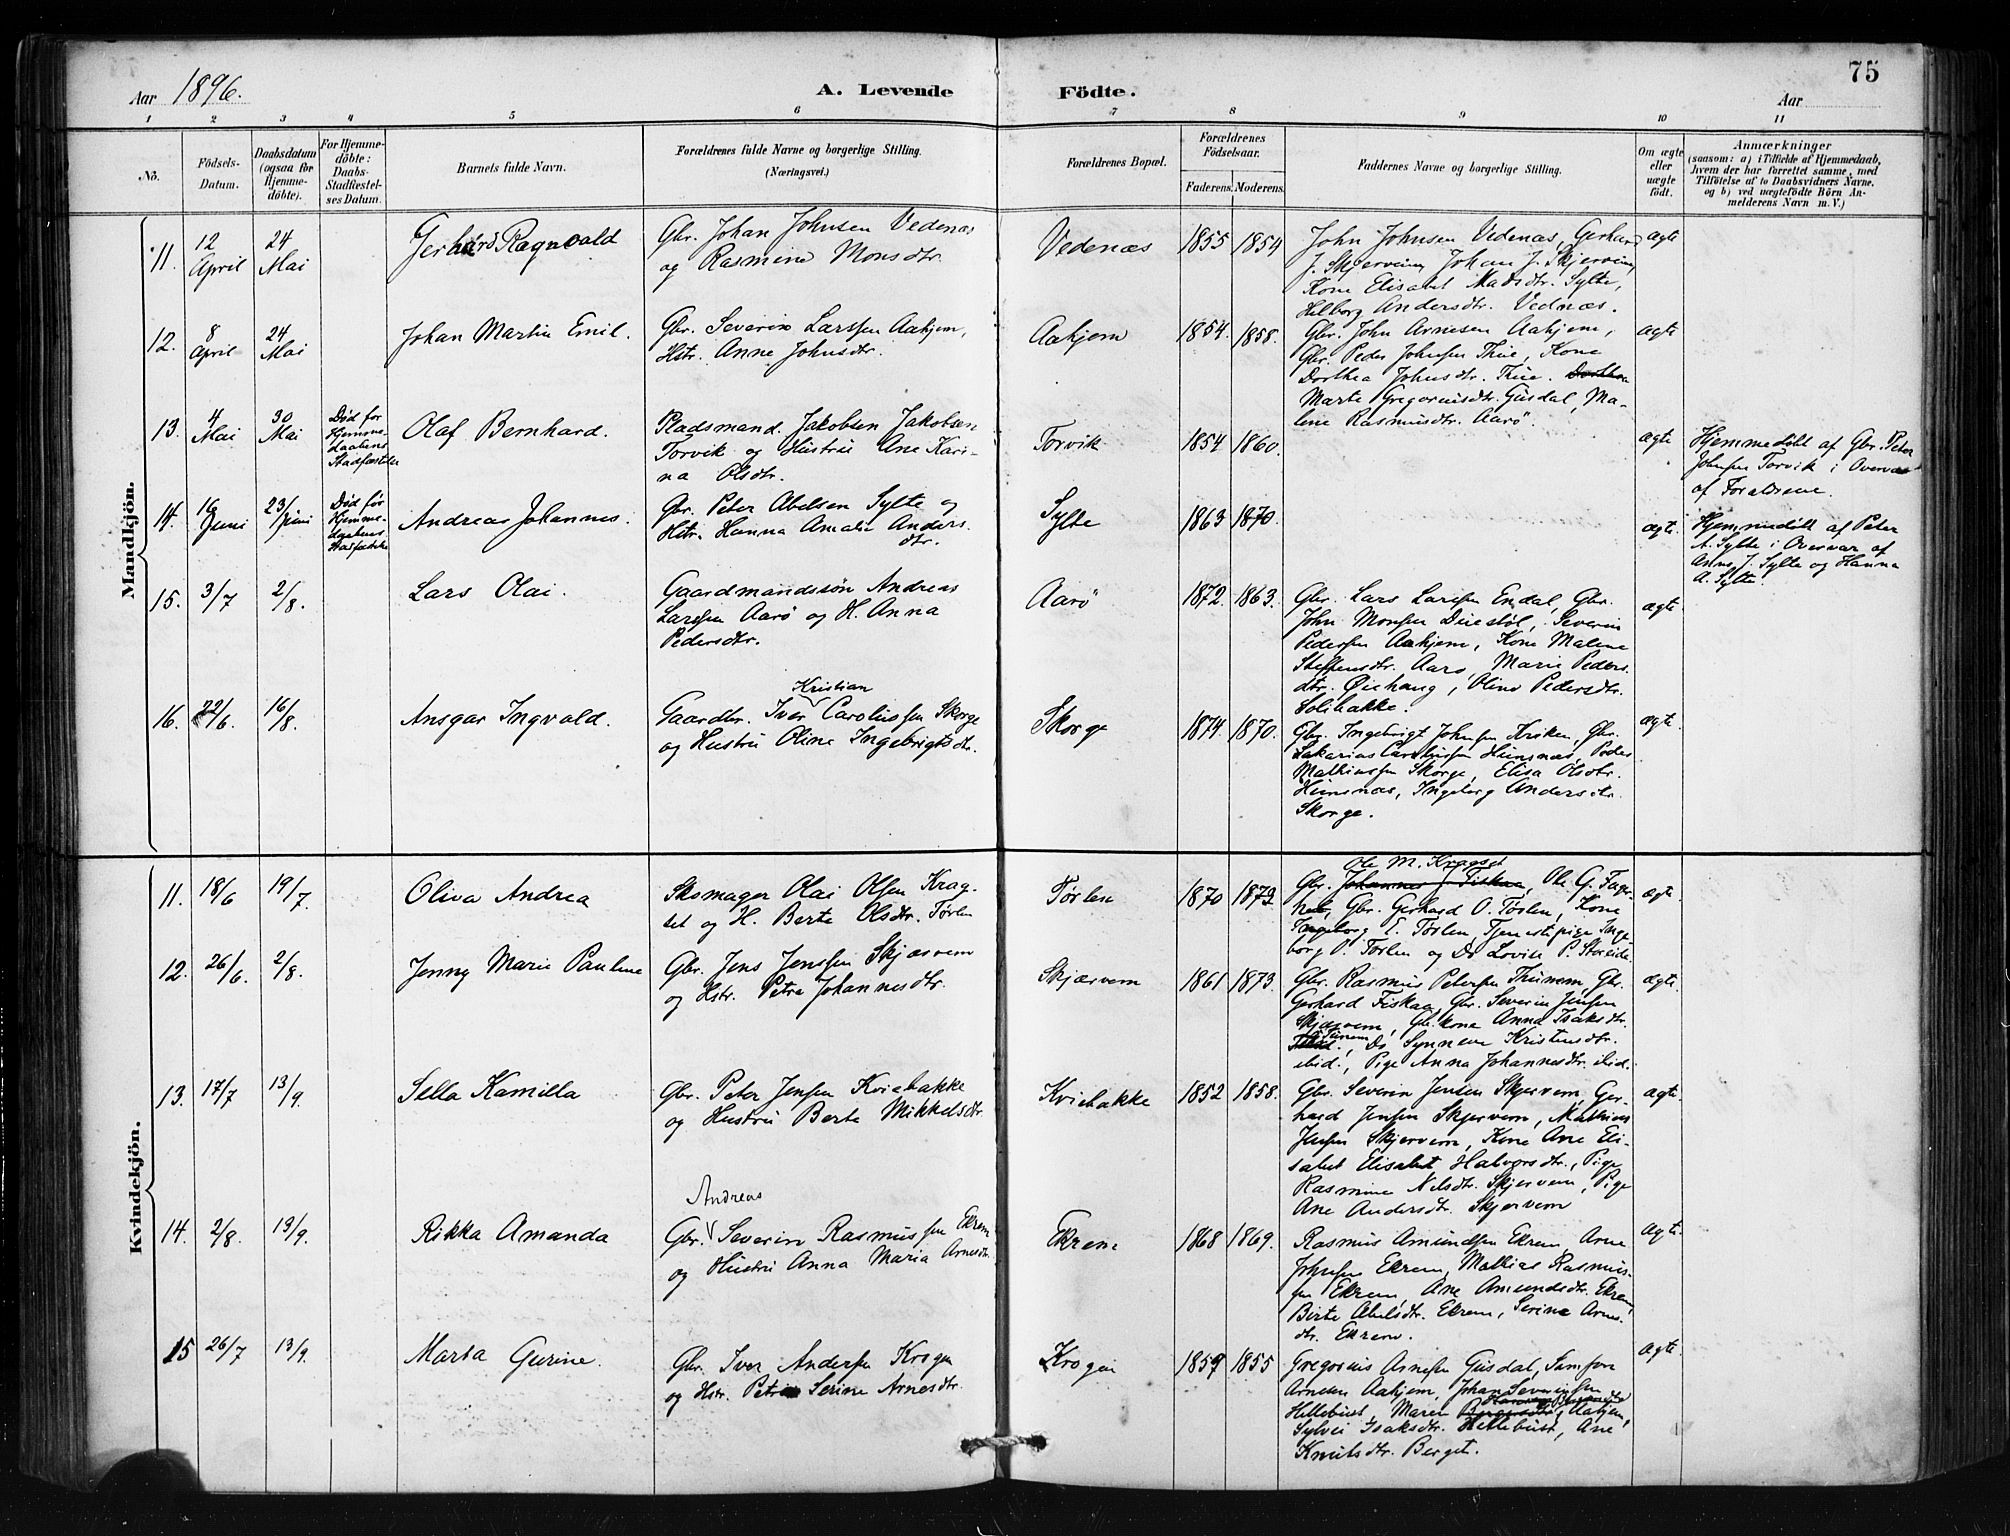 75
Aar 1896.
A. Levende Födte.
Aar
1 2 3 4 5 6 7 8 9 10 11
No.
Födsels-Datum.
Daabsdatum (ogsaa for Hjemme-döbte).
For Hjemme-döbte: Daabs-Stadfæstel-ses Datum.
Barnets fulde Navn.
Forældrenes fulde Navne og borgerlige Stilling.
(Næringsvei.)
Forældrenes Bopæl.
Forældrenes Födselsaar.
Faderens. Moderens.
Faddernes Navne og borgerlige Stilling.
Om ægte eller uægte födt.
Anmærkninger
(saasom: a) i Tilfælde af Hjemmedaab,
hvem der har forrettet samme, med
Tilföielse af to Daabsvidners Navne,
og b) ved uægtefödte Börn An-
melderens Navn m. V.)
Mandkjön.
11. 12 April 24 Mai Gerhard Ragnvald
Gbr. Johan Johnsen Vedenæs
og Rasmine Monsdtr.
Vedenæs 1855 1854
John Johnsen Vedenæs, Gerhard
J. Skjerveim, Johan J. Skjerveim,
Kone Elisabet Madsdtr. Sylte,
Helborg Andersdtr. Vednæs.
ægte
12. 8 April 24 Mai Johan Martin Emil.
Gbr. Severin Larssen Aahjem,
Hstr. Anne Johnsdtr.
Aahjem 1854 1858.
Gbr. John Arnesen Aahjem,
Gbr. Peder Johnsen Thue, Kone
Dorthea Johnsdtr. Thue. Dorthea
Marte Gregoriusdtr. Gusdal, Ma-
lene Rasmusdtr. Aarö.
ægte
13. 4 Mai 30 Mai
Död för
Hjemme-
daabens
Stadfæstelse
Olaf Bernhard.
Pladsmand. Jakobsen Jakobsen
Torvik og Hustru Ane Kari-
na Olsdtr.
Torvik 1854 1860.
ægte
Hjemmedöbt af Gbr. Peter
Johnsen Torvik i Overvær
af Forældrene.
14. 19 Juni 23/Juni
Död før
Hjemme-
daabens
Stadfæstelse
Andreas Johannes.
Gbr. Peter Abelsen Sylte og
Hstr. Hanna Amalie Anders
dtr.
Sylte 1863 1870.
ægte.
Hjemmedöbt af Peter
A. Sylte i Overvær af
Anne J. Sylte og Hanna
A. Sylte.
15. 3/7 2/8. Lars Olai.
Gaardmandssön Andreas
Larssen Aarö og H. Anna
Pedersdtr.
Aarö 1872. 1863.
Gbr. Lars Larssen Endal, Gbr.
John Monssen Duestöl, Severin
Pederssen Aahjem, Kone Malene
Steffensdtr. Aarö, Marie Peders
dtr. Öiehaug, Oline Pedersdtr.
Solibakke.
ægte
16. 22/6. 16/8. Ansgar Ingvald.
Kristian
Gaardbr. Iver Carolussen Skorge
og Hustru Oline Ingebrigtsdtr.
Skorge 1874. 1870.
Gbr. Ingebrigt Johnsen Kriken, Gbr.
Sakarias Carolussen Hunsnæs, Peder
Mathiassen Skorge, Elisa Olsdtr.
Hunsnæs, Ingeborg Andersdtr.
Skorge.
ægte
Kvindekjön.
11. 18/6 19/7 Oliva Andrea
Skomager Olai Olsen Krag-
set og H. Berte Olsdtr. Tørlen
Tørlen 1870 1873
Ole M. Kragset
Gbr. Johannes J. Fiskaa, Ole G. Fager-
Gbr. Gerhard O. Torlen, Kone
Ingeborg E. Torlen, Tjenestepige Inge-
borg P. Torlen og Do Lovise P. Storeide
ægte.
12. 26/6. 2/8. Jenny Marie Pauline
Gbr. Jens Jenssen Skjærvem
og Hstr. Petra Johannesdtr.
Skjærvem 1861 1873.
Gbr. Rasmus Peterssen Thunem, Gbr.
Gerhard Fiskaa, Gbr. Severin Jensen
Skjærvem, Gbr.kone Anna Isaksdtr.
Tunem, Do Synneve Kristensdtr.
ibid., Pige Anna Johannesdtr. ibid.
ægte.
13. 17/7 13/9. Sella Kamilla
Gbr. Peter Jensen Kviebakke
og Hustru Berte Mikkelsdtr.
Kviebakke 1852 1858.
Gbr. Severin Jensen Skjervem, Ger-
hard Jensen Skjervem, Mathias
Jensen Skjervem, Kone Ane Eli-
sabet Elisabet Halvorsdtr., Pige
Rasmine Nilsdtr. Skjervem, Pige
Ane Andersdtr. Skjervem
ægte.
14. 2/8. 13/9. Rikka Amanda
Andreas
Gbr. Severin Rasmussen Ekrem
og Hustru Anna Maria Arnesdtr.
Ekrem 1868 1869.
Rasmus Amundsen Ekrem, Arne
Johnsen Ekrem, Mathias Rasmus-
sen Ekrem, Ane Amundsdtr. Ekrem,
Birte Abelsdtr. Ekrem, Serine Arnes-
dtr. Ekrem.
ægte.
15 26/7 13/9. Marta Gurine.
Gbr. Iver Anderssen Krogen
og Hstr. Petrine Serine Arnesdtr.
Krogen 1859 1855
Gregorius Arnesen Gusdal, Samson
Arnesen Aahjem, Johan Severinssen
Hellebust, Maren Aahjem,
Sylvei Isaksdtr. Hellebust, Ane
Knutsdtr. Berget.
ægte.